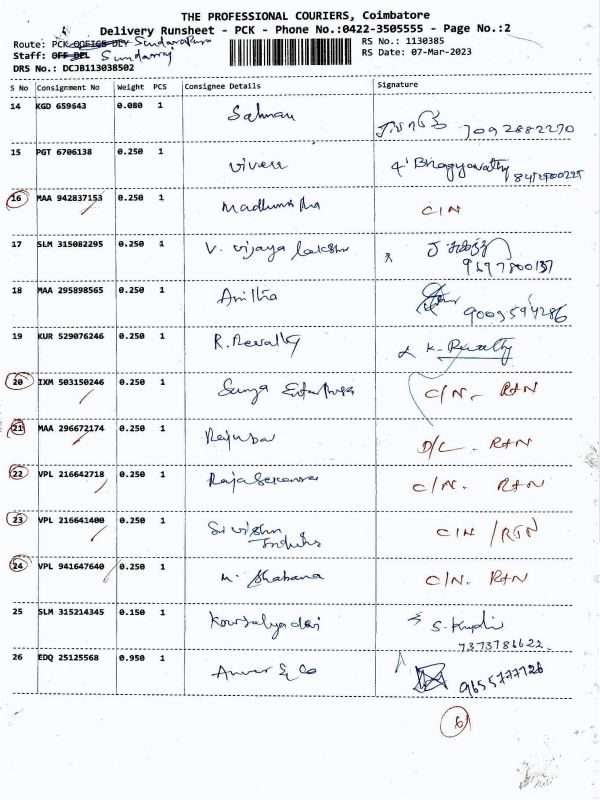 THE PROFESSIONAL COURIERS, Coimbatore
Delivery Runsheet - PCK - Phone No.:0422-3505555 - Page No.:2
Route: PCK OFFICE DLY Sundarapuram
RS No.: 1130385
Staff: OFF DEL Sundarraj
RS Date: 07-Mar-2023
DRS No.: DCJB113038502
S No Consignment No Weight PCS Consignee Details Signature
14 KGD 659643 0.080 1 Salman 7092882270
15 PGT 6706138 0.250 1 Vivek Bhagyavathy
16 MAA 942837153 0.250 1 C/N
17 SLM 315082295 0.250 1 V. Vijaya Lakshmi
18 MAA 295898565 0.250 1 Anitha 9003594286
19 KUR 529076246 0.250 1 R. Revathy K. Revathy
20 IXM 503150246 0.250 1 C/N - RTN
21 MAA 296672174 0.250 1 D/L - RTN
22 VPL 216642718 0.250 1 Rajasekaran C/N. RTN
23 VPL 216641400 0.250 1 Sri Vishnu C/N / RTN
24 VPL 941647640 0.250 1 M. Shabana C/N. RTN
25 SLM 315214345 0.150 1 Kowsalyadevi
7373786622
26 EDQ 25125568 0.950 1 Anwar & Co 9655777726
6